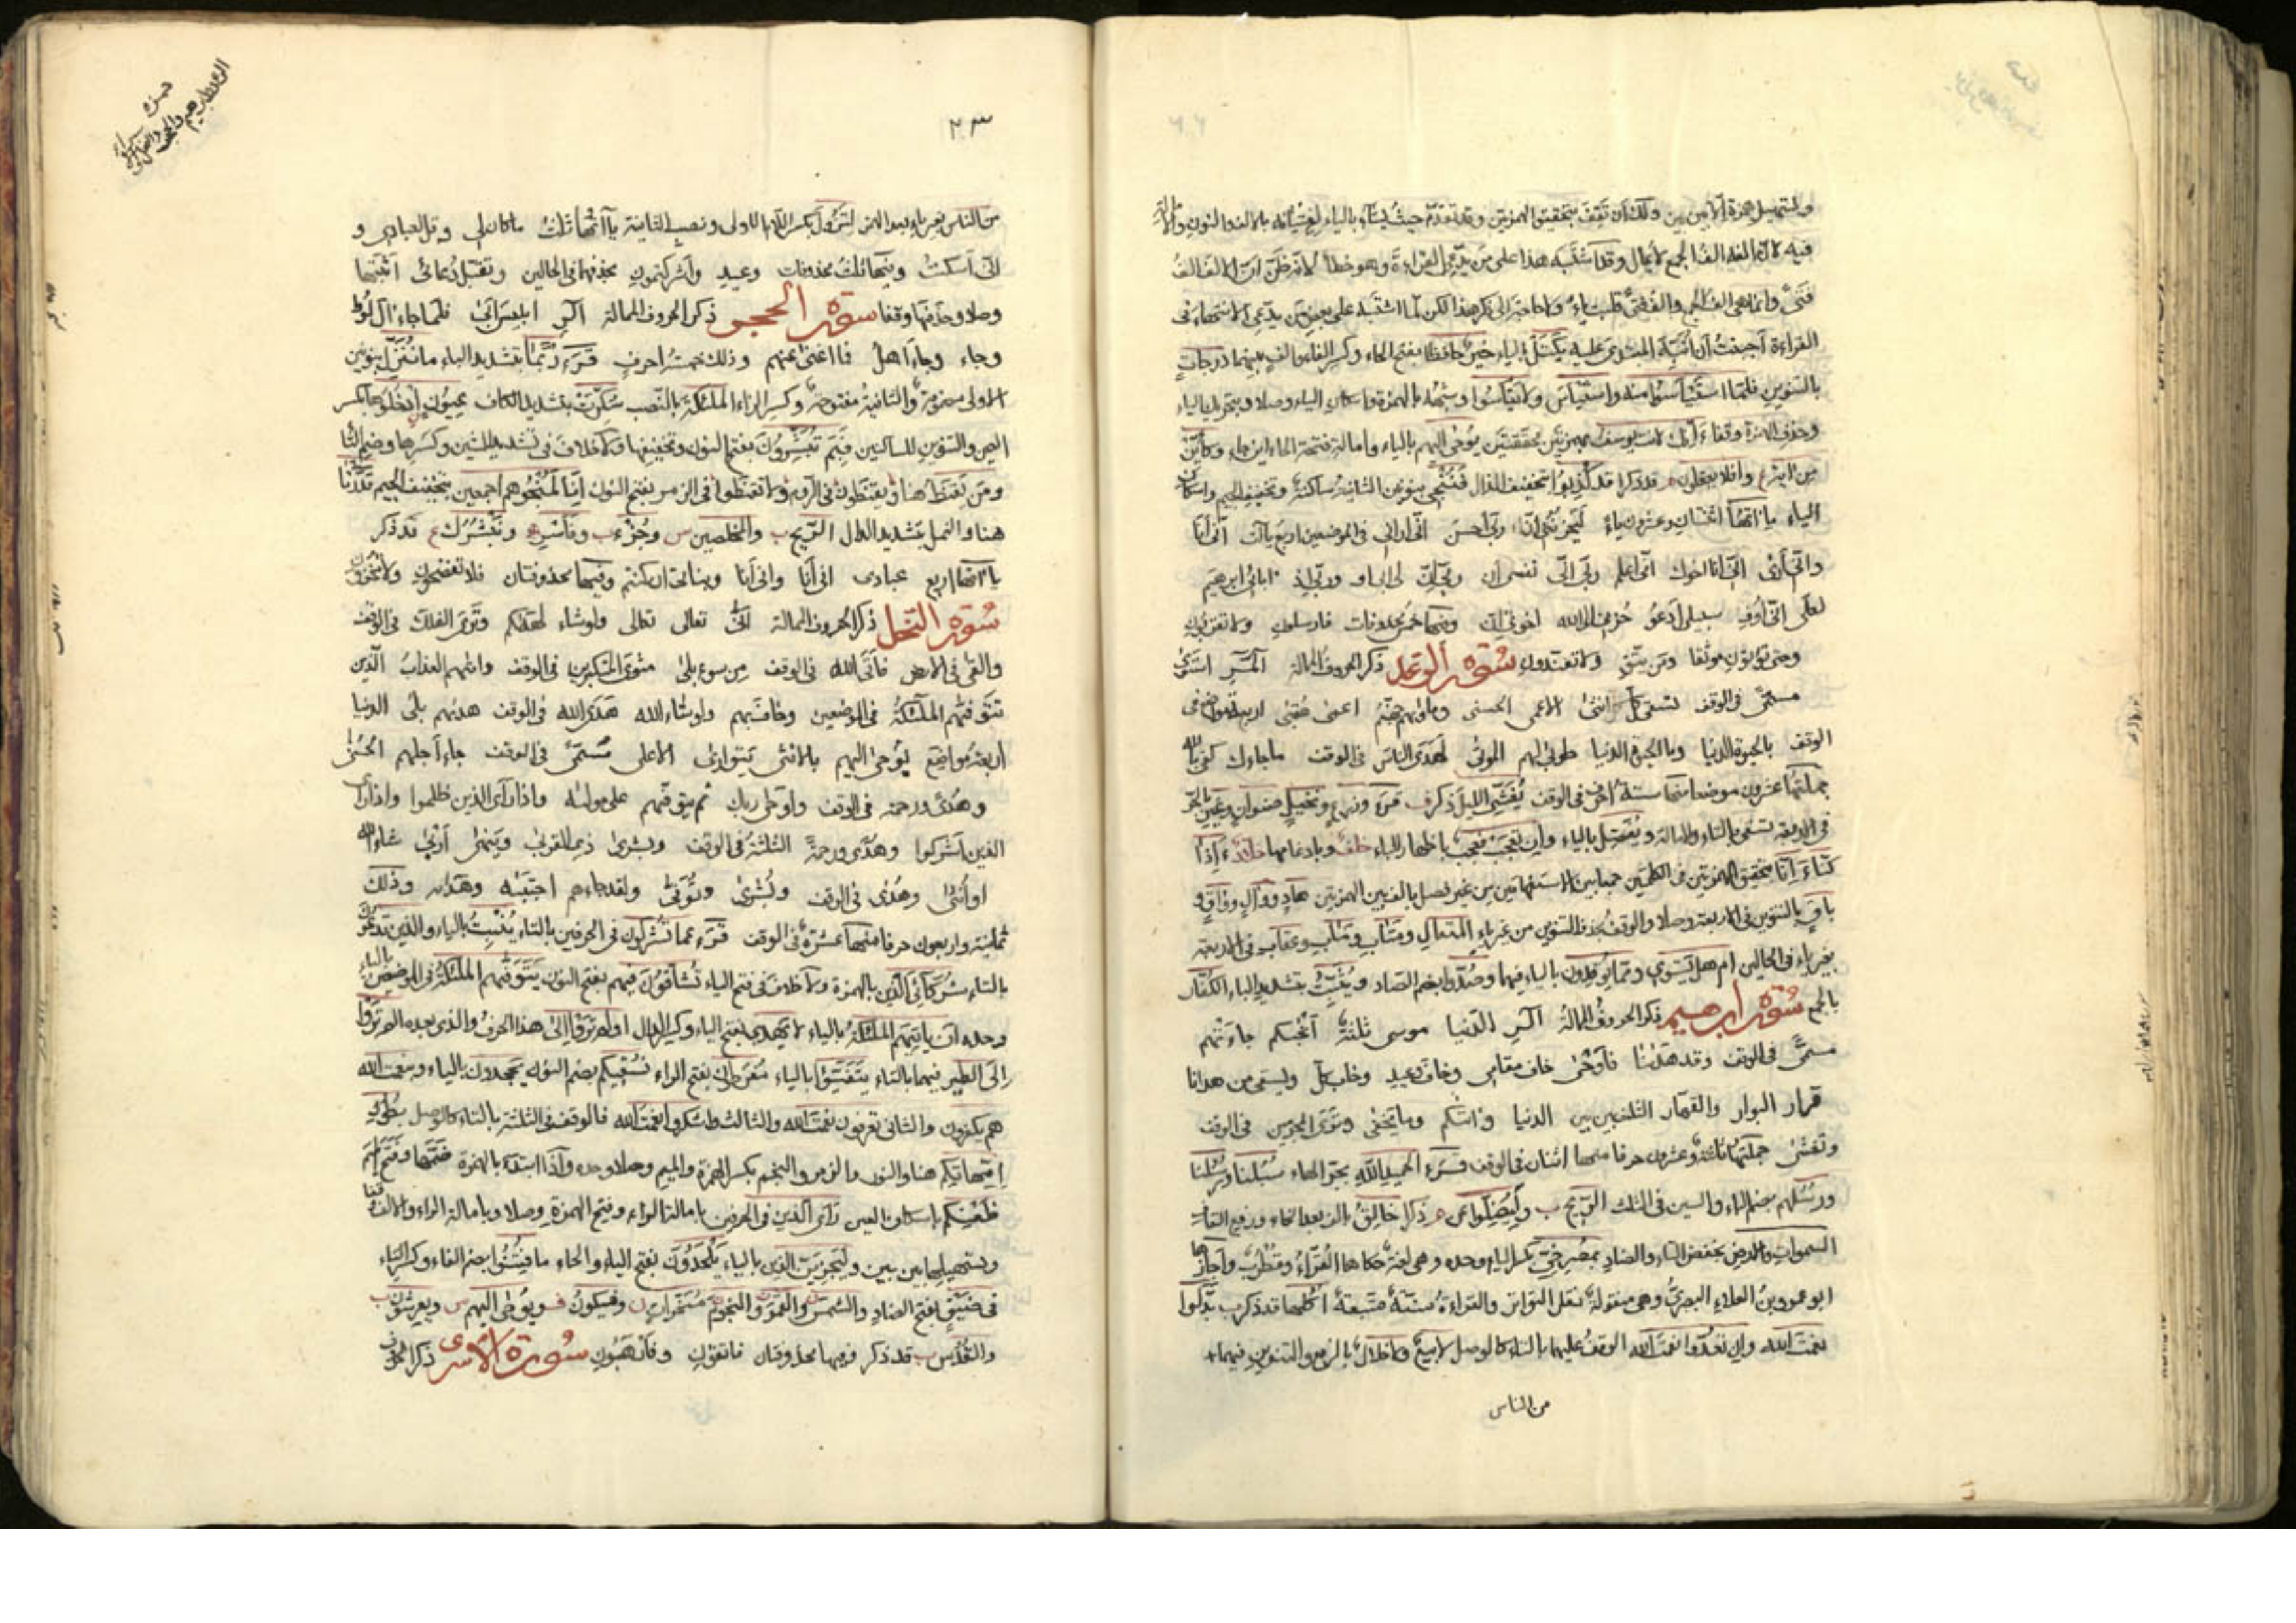 وتسهيل همزة الامن بين وذلك ان تقف بتحقيق الهمزتين وقد تقدم حيث يشاء بالياء لفتيانه بالالف والنون
فيه لان الفه الف الجمع لا يمال وقد اشتبه هذا على من يدعي القراءة وهو خطأ لانه ظن ان الالف الف
فتى وانما هي الف الجمع والف فتى قلبت ياء وما حاجة الى ذكر هذا لكن لما اشتبه على بعض من يدعي الانتهاء في
القراءة احببت ان انبه المبتدي عليه يكتل بالياء خير حافظا بفتح الحاء وكسر الفاء من الف بينهما درجات
بالتنوين فلما استيأسوا منه واستيأس ولا تيأسوا وشبهه بالهمزة واسكان الياء وصلا وبتحريك الياء
وحذف الهمزة وقفا ءانك لانت يوسف بهمزتين محققتين يوحى اليهم بالياء وامالة فتحة الحاء اين جاء وكاين
من اية وافلا يعقلون قد ذكرا قد كذبوا بتخفيف الذال فننجي بنونين الثانية ساكنة وتخفيف الجيم واسكان
الياء ياءاتها اثنتان وعشرون ياء ليحزنني ان ربي احسن اني اراني في الموضعين اربع ياآت اني انا
واني ارى اني انا اخوك اني اعلم ربي اني نفسي ان ربي ان لي ابي او وربي اذ اباءي ابرهيم
لعلي اني اوف سبيلي ادعو حزني الى الله اخوتي ان وفيها خمس محذوفات فارسلون ولا تقربون
وحتى تؤتون موثقا ومن يتق ولا تفندون سورة الرعد ذكر الحروف الممالة المر استوى
مسمى في الوقف تسقى كل انثى الاعمى الحسنى وماويهم جهنم اعمى عقبى اربعة مواضع في
الوقف بالحيوة الدنيا وما الحيوة الدنيا طوبى لهم الموتى لهدى الناس في الوقف ما جاءك كفى بالله
جملتها عشرون موضعا منها ستة احرف في الوقف يغشي الليل ذكر قرء وزرع ونخيل صنوان وغير بالجر
في الاربعة تسقى بالتاء والامالة ويفضل بالياء وان تعجب فعجب باظهار الباء خلف وبادغامها خلاد ءاذا
كنا ءانا بتحقيق الهمزتين في الكلمتين جميعا بين الاستفهامين من غير فصل بالف بين الهمزتين هاد ووال وواق و
باق بالتنوين في الاربعة وصلا والوقف بحذف التنوين من غير ياء المتعال ومتاب ومآب وعقاب في الاربعة
بغير ياء في الحالين ام هل يستوي ومما يوقدون بالياء فيهما وصدوا بضم الصاد ويثبت بتشديد الباء الكفار
بالجمع سورة ابرهيم ذكر الحروف الممالة الر الدنيا موسى ثلثة انجيكم جاءتهم
مسمى في الوقف وقد هدينا فاوحى خاف مقامي وخاف وعيد وخاب كل ويسقى من هدانا
قرار البوار والقهار الثلث بين بين الدنيا واتيكم وما يخفى وترى المجرمين في الوقف
وتغشى جملتها ثلثة وعشرون حرفا منها اثنان في الوقف قرء الحميد الله بجر الهاء سبلنا ورسلنا
ورسلهم بضم الباء والسين في الثلث الريح وليضلوا عن ذكرا خالق بالف بعد الخاء ورفع القاف
السموات والارض بخفض التاء والضاد بمصرخي بكسر الياء وحده وهي لغة حكاها الفراء وقطرب واجازها
ابو عمرو بن العلاء البصري وهي منقولة بنقل التواتر والقراءة سنة متبعة اكلها قد ذكر
نعمت الله وان تعدوا نعمت الله الوقف عليهما بالتاء كالوصل لا بيع ولا خلال بالرفع والتنوين فيهما
من الناس
٢٣
من الناس بغير ياء بعد الهمز لتزول بكسر اللام الاولى ونصب الثانية ياآتها ثلث ما كان لي وقل لعبادي و
اني اسكنت وفيها ثلث محذوفات وعيد واشركتمون بحذفها في الحالين وتقبل دعائي اثبتها
وصلا وحذفها وقفا سورة الحجر ذكر الحروف الممالة الر ابليس ابى فلما جاء ال لوط
وجاء وجاء اهل فما اغنى عنهم وذلك خمسة احرف قرء ربما بتشديد الباء ما ننزل بنونين
الاولى مضمومة والثانية مفتوحة وكسر الزاء الملئكة بالنصب سكرت بتشديد الكاف عيون ادخلوها بكسر
العين والتنوين للساكنين فبم تبشرون بفتح النون وتخفيفها ولا خلاف في تشديد الشين وكسرها وضم التا
ومن يقنط هنا ويقنطون في الروم ولا تقنطوا في الزمر بفتح النون انا لمنجوهم اجمعين بتخفيف الجيم قدرنا
هنا والنمل بتشديد الدال الريح والمخلصين وجزء وفاسر ونبشرك قد ذكر
ياءاتها اربع عبادي اني انا واني انا وبناتي ان كنتم وفيها محذوفتان فلا تفضحون ولا تخزون
سورة النحل ذكر الحروف الممالة اتى تعالى تعالى ولو شاء لهديكم وترى الفلك في الوقف
والقى في الارض فاتى الله في الوقف من سوء بلى مثوى المتكبرين في الوقف واتيهم العذاب الذين
تتوفيهم الملئكة في الموضعين وحاق بهم ولو شاء الله هدى الله في الوقف هديهم بلى الدنيا
اربعة مواضع يوحى اليهم بالانثى يتوارى الاعلى مسمى في الوقف جاء اجلهم الحسنى
وهدى ورحمة في الوقف واوحى ربك ثم يتوفيكم على موليه واذا راى الذين ظلموا واذا راى
الذين اشركوا وهدى ورحمة الثلثة في الوقف وبشرى ذي القربى وينهى اربى شاء الله
او انثى وهدى في الوقف وبشرى وتوفى ولقد جاءهم اجتبيه وهديه وذلك
ثمانية واربعون حرفا منها عشرة في الوقف قرء عما تشركون في الحرفين بالتاء ينبت بالياء والذين تدعون
بالتاء شركائي الذين بالهمزة ولا خلاف في فتح الياء تشاقون فيهم بفتح النون يتوفيهم الملئكة في الموضعين بالياء
وحده ان ياتيهم الملئكة بالياء لا يهدي بفتح الياء وكسر الدال اولم تروا الى هذا الحرف والذي بعده الم تروا
الى الطير فيهما بالتاء يتفيؤا بالياء مفرطون بفتح الراء نسقيكم بضم النون يجحدون بالياء وبنعمت الله
هم يكفرون والثاني تعرفون نعمت الله والثالث واشكروا نعمت الله فالوقف في الثلثة بالتاء كالوصل بطون
امهاتكم هنا والنور والزمر والنجم بكسر الهمزة والميم وصلا وحده واذا ابتدء بالهمزة ضمها وفتح الميم
ظعنكم باسكان العين راى الذين في الحرفين بامالة الراء وفتح الهمزة وصلا وبامالة الراء والالف وقفا
وبتسهيلها بين بين وليجزين الذين بالياء يلحدون بفتح الياء والحاء ما فتنوا بضم الفاء وكسر التاء
في ضيق بفتح الضاد والشمس والقمر والنجوم مسخرات وفيكون ويوحى اليهم ويعرشون
والقدس قد ذكر وفيها محذوفتان فاتقون وفارهبون سورة الاسرى ذكر الحروف